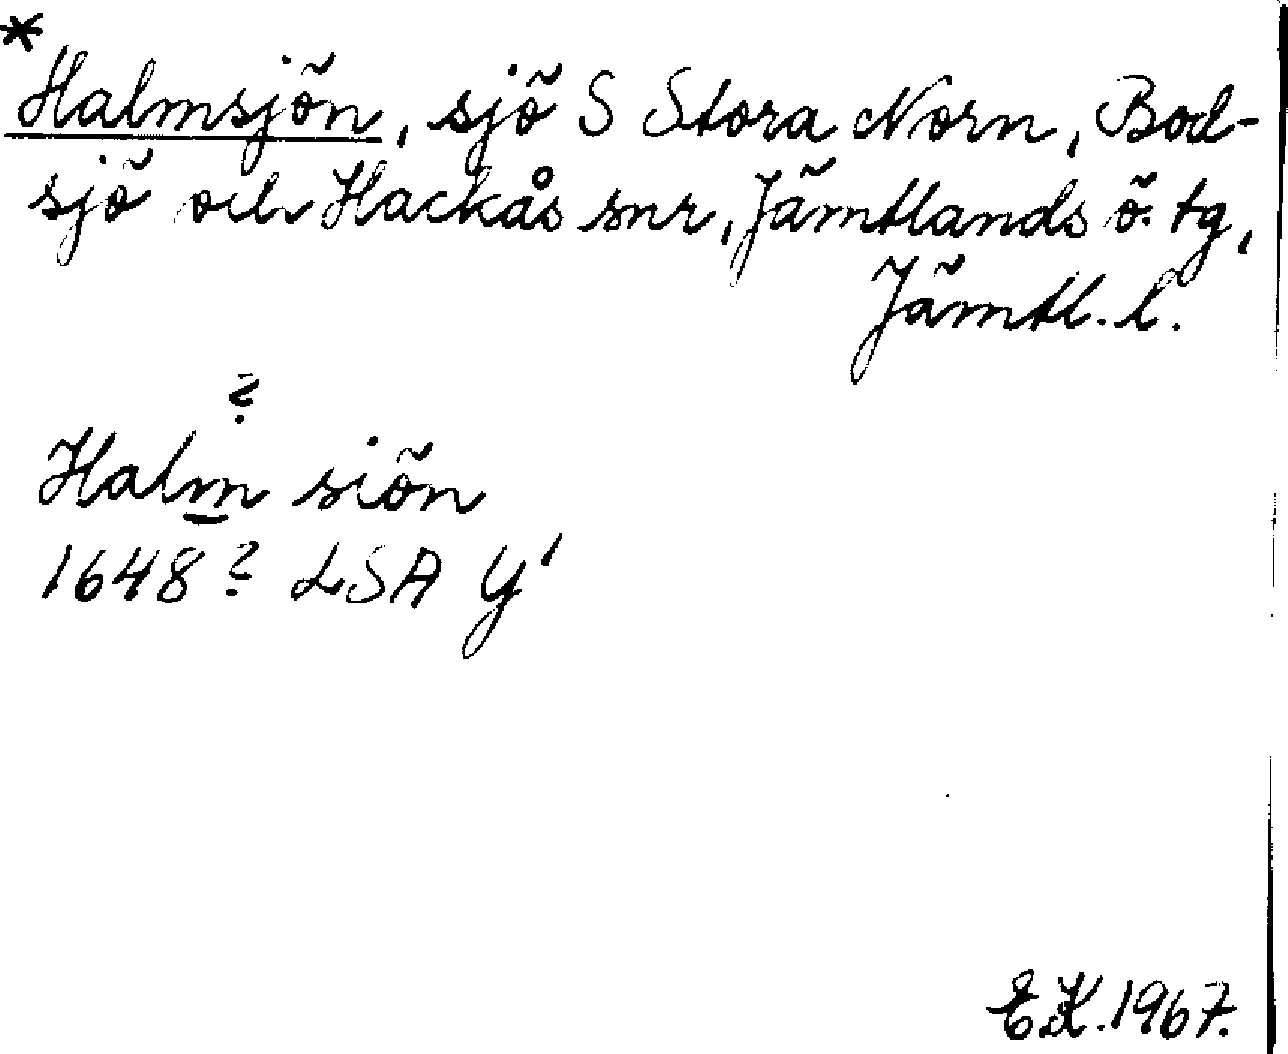 *
Halmsjön, sjö S Stora Norn, Bod-
sjö och Hackås snr, Jämtlands ö. tg,
Jämtl. l.
?
Halm siön
1648? LSA Y1
E.K. 1967.